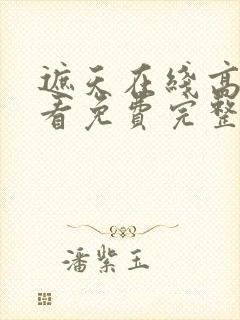 遮天在线高
看免费完整
潘紫玉